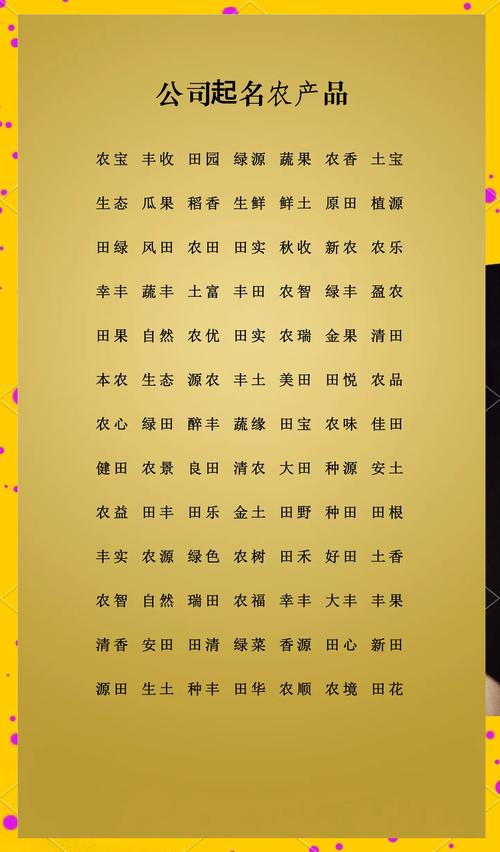 公司起名农产品
农宝 丰收 田园 绿源 蔬果 农香 土宝
生态 瓜果 稻香 生鲜 鲜土 原田 植源
田绿 风田 农田 田实 秋收 新农 农乐
幸丰 蔬丰 土富 丰田 农智 绿丰 盈农
田果 自然 农优 田实 农瑞 金果 清田
本农 生态 源农 丰土 美田 田悦 农品
农心 绿田 醉丰 蔬缘 田宝 农味 佳田
健田 农景 良田 清农 大田 种源 安土
农益 田丰 田乐 金土 田野 种田 田根
丰实 农源 绿色 农树 田禾 好田 土香
农智 自然 瑞田 农福 幸丰 大丰 丰果
清香 安田 田清 绿菜 香源 田心 新田
源田 生土 种丰 田华 农顺 农境 田花